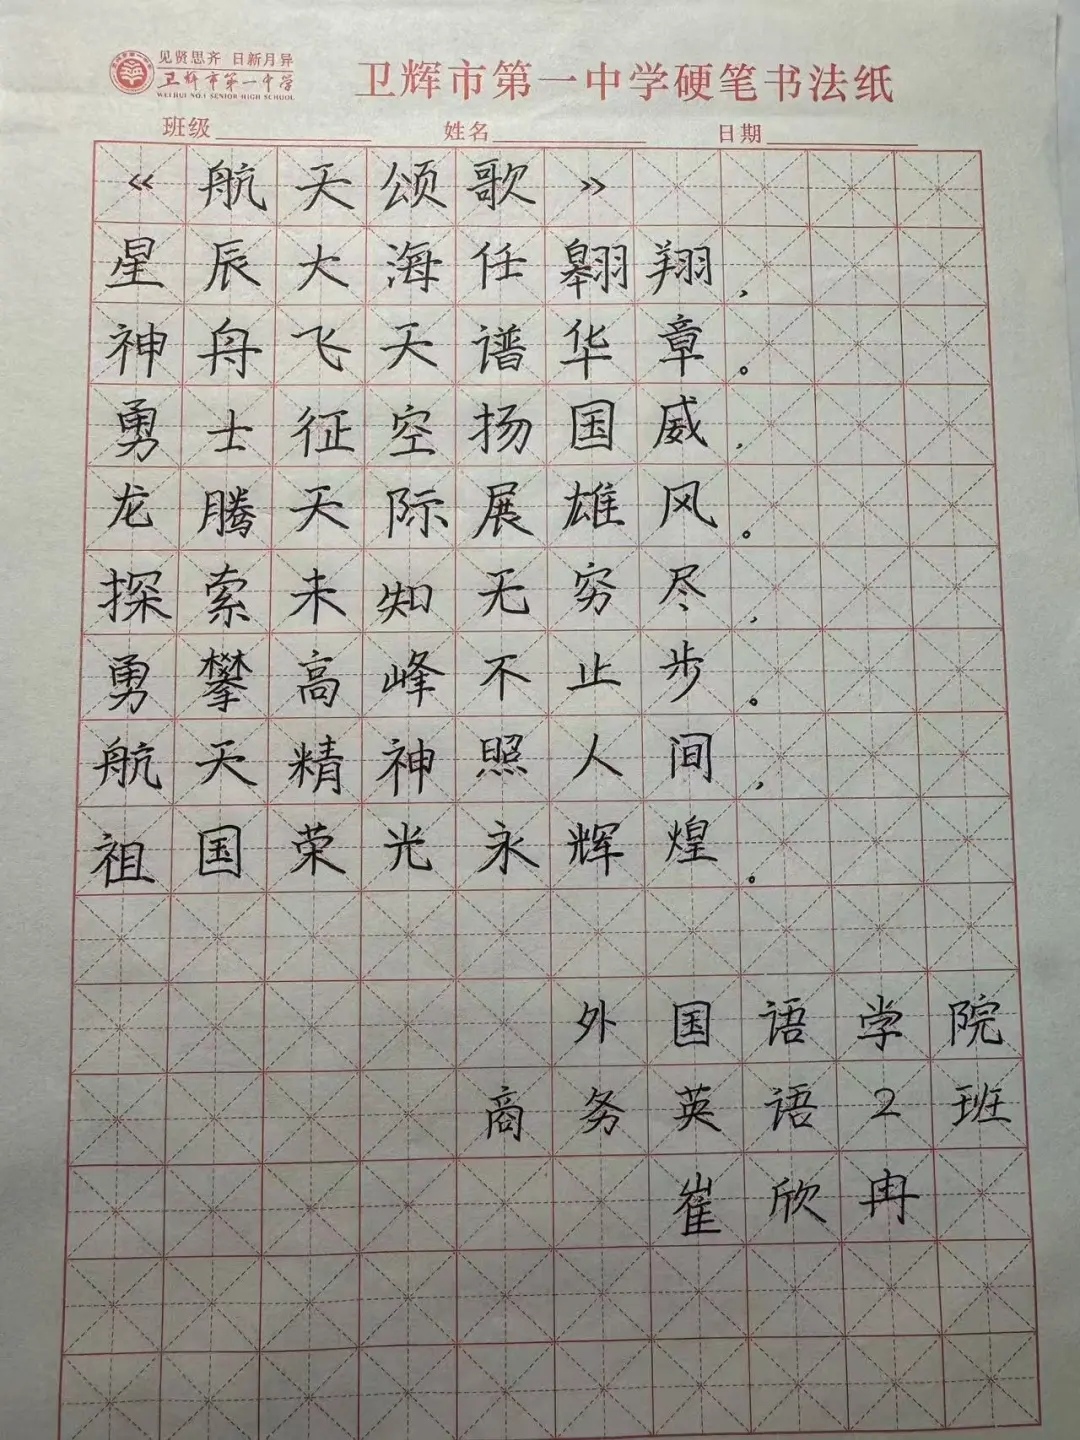 见贤思齐 日新月异
卫辉市第一中学
WEI HUI NO.1 SENIOR HIGH SCHOOL
卫辉市第一中学硬笔书法纸
班级 姓名 日期
《航天颂歌》
星辰大海任翱翔，
神舟飞天谱华章。
勇士征空扬国威，
龙腾天际展雄风。
探索未知无穷尽，
勇攀高峰不止步。
航天精神照人间，
祖国荣光永辉煌。
外国语学院
商务英语2班
崔欣冉